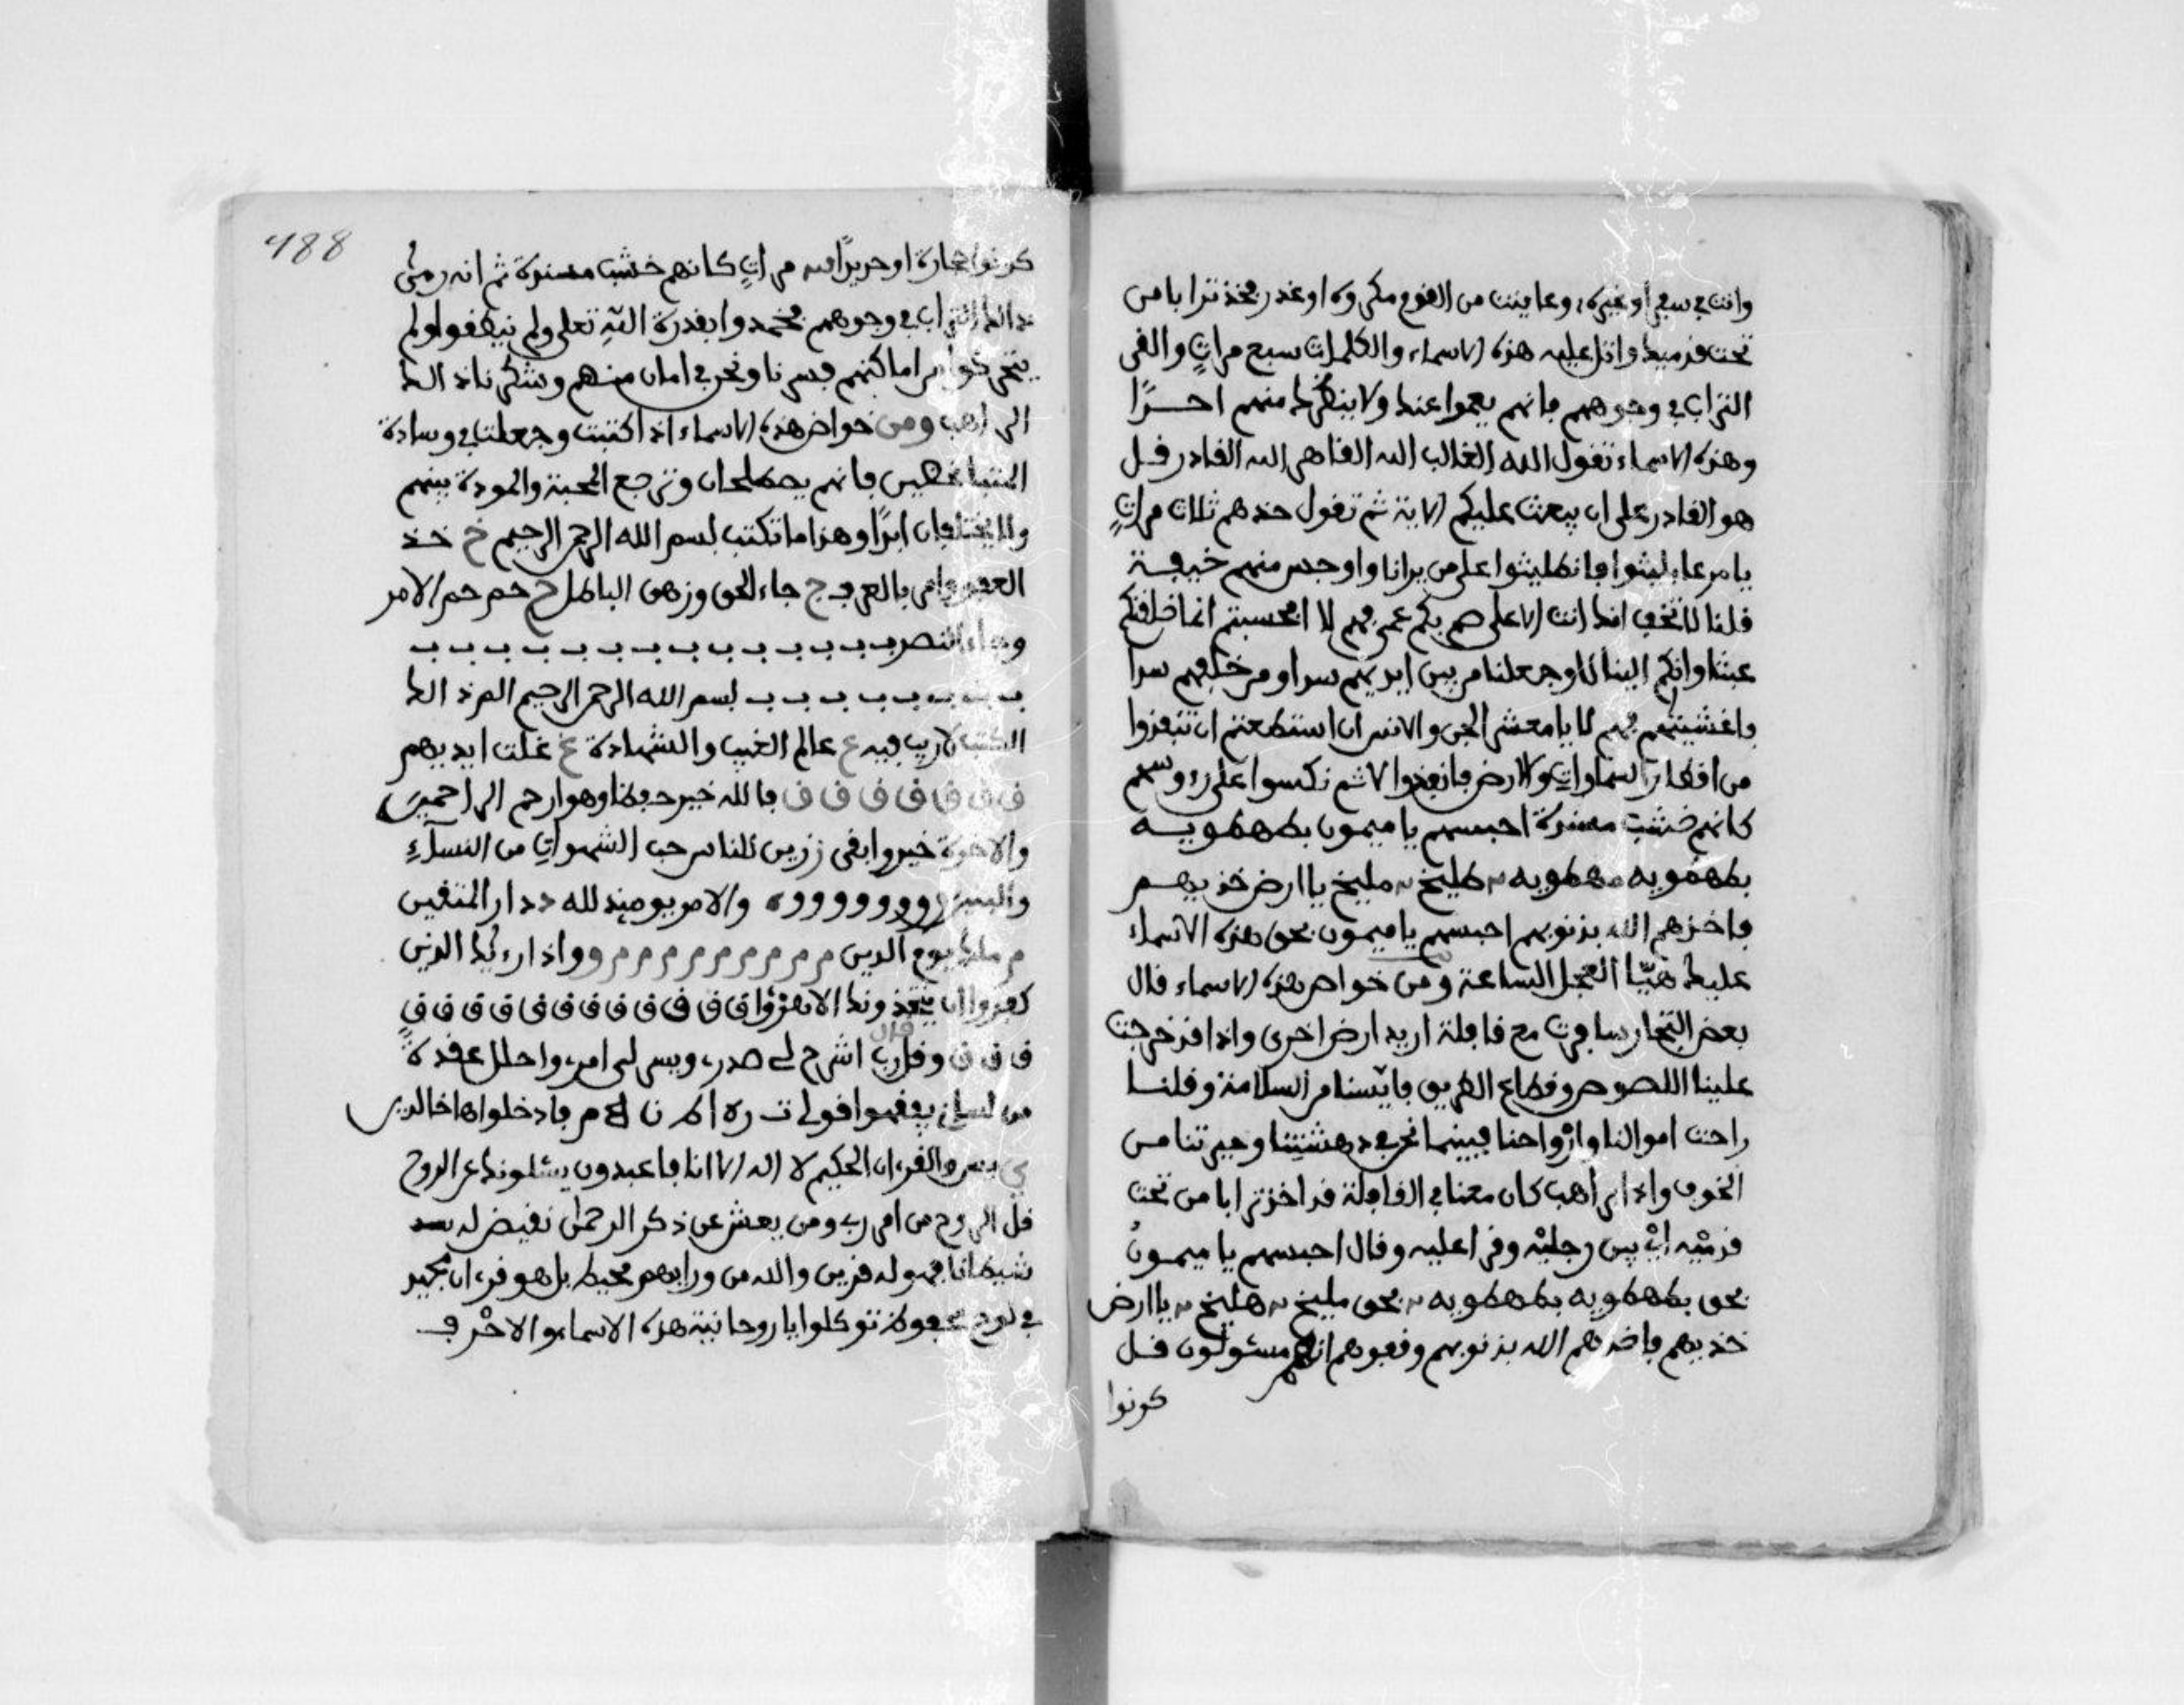 وانت في سفر أو غيره وعاينت من القوم مكروه او غدر فخذ ترابا من
تحت قدميك واتل عليه هذه الاسماء والكلمات سبع مرات والقى
التراب في وجوههم فانهم يعموا عنك ولا ينظرك منهم احدًا
وهذه الاسماء تقول الله الغالب الله القاهر الله القادر قل
هو القادر على ان يبعث عليكم الاية ثم تقول خذهم ثلاث مراتٍ
فانطليثوا على من يرانا واوجس منهم خيفة
قلنا لا تخف انك انت الاعلى صم بكم عمي فهم لا افحسبتم انما خلقنكم
عبثا وانكم الينا لا وجعلنا من بين ايديهم سدا ومن خلفهم سدا
واغشيناهم فهم لا يا معشر الجن والانس ان استطعتم ان تنفذوا
من اقطار السماوات والارض فانفذوا لا ثم نكسوا على رءوسهم
كانهم خشب مسندة احبسهم يا ميمون بطهطويه
بطهطويه مهطويه طليخ مليخ يا ارض خذيهم
فاخذهم الله بذنوبهم احبسهم يا ميمون بحق هذه الاسماء
عليك هيّا العجل الساعة ومن خواص هذه الاسماء قال
بعض التجار سافرت مع قافلة اريد ارض اخرى واذا قد خرجت
علينا اللصوص وقطاع الطريق فايّسنا من السلامة وقلنا
راحت اموالنا وارْواحنا فبينما نحن في دهشتِنا وحيرتنا من
الخوف واذا براهب كان معنا في القافلة قد اخذ ترابا من تحت
قدمَيْه ايْ بين رجليْه وقرا عليه وقال احبسهم يا ميمونُ
بحق بطهطويه بطهطويه بحق مليخ هليخ يا ارض
خذيهم فاخذهم الله بذنوبهم وقفوهم انهم مسئولون قل
كونوا
488
كونوا حجارة او حديدًا مراتٍ كانهم خشب مسندة ثم انه رمى
ذالك التراب في وجوههم فخمدوا بقدرة الله تعلى ولم ينطقوا ولم
يتحركوا من اماكنهم فسرنا ونحن في امان منهم وشكرنا ذالك
الراهب ومن خواص هذه الاسماء اذا كتبت وجعلت في وسادة
المتباغضين فانهم يصطلحان وترجع المحبة والمودة بينهم
ولا يختلفان ابدًا وهذا ما تكتب بسم الله الرحمن الرحيم خ خذ
العفو وامر بالعرف ج جاء الحق وزهق الباطل ح حم حم الامر
وجاء النصر ب ب ب ب ب ب ب ب ب ب ب ب ب ب
ب ب ب ب ب ب ب ب بسم الله الرحمن الرحيم الم ذالك
الكتب لا ريب فيه ع عالم الغيب والشهادة غ غلت ايديهم
ف ف ف ف ف ف ف فالله خير حفظا وهو ارحم الراحمين
والاخرة خير وابقى ز زين للناس حب الشهوات من النسآءِ
والبنين و و و و و و و ه والامر يومئذ لله د دار المتقين
م ملك يوم الدين م م م م م م م م م و واذا رءاك الذين
كفروا ان يتخذونك الا هزؤا ق ق ق ق ق ق ق ق ق ق ق ق
ق ق ق وقل رب اشرح لي صدر، ويسر لي امر، واحلل عقدة
قال
من لساني يفقهوا قولي ت ر ه ا ك ن ا م فادخلوها خالدين
ي يس والقرءان الحكيم لا اله الا انا فاعبدون يسئلونك عن الروح
قل الروح من امر رب ومن يعش عن ذكر الرحمن نقيض له
شيطانا فهو له قرين والله من ورايهم محيط بل هو قرءان مجيد
في لوح محفوظ توكلوا يا روحانية هذه الاسماء والاحْرف